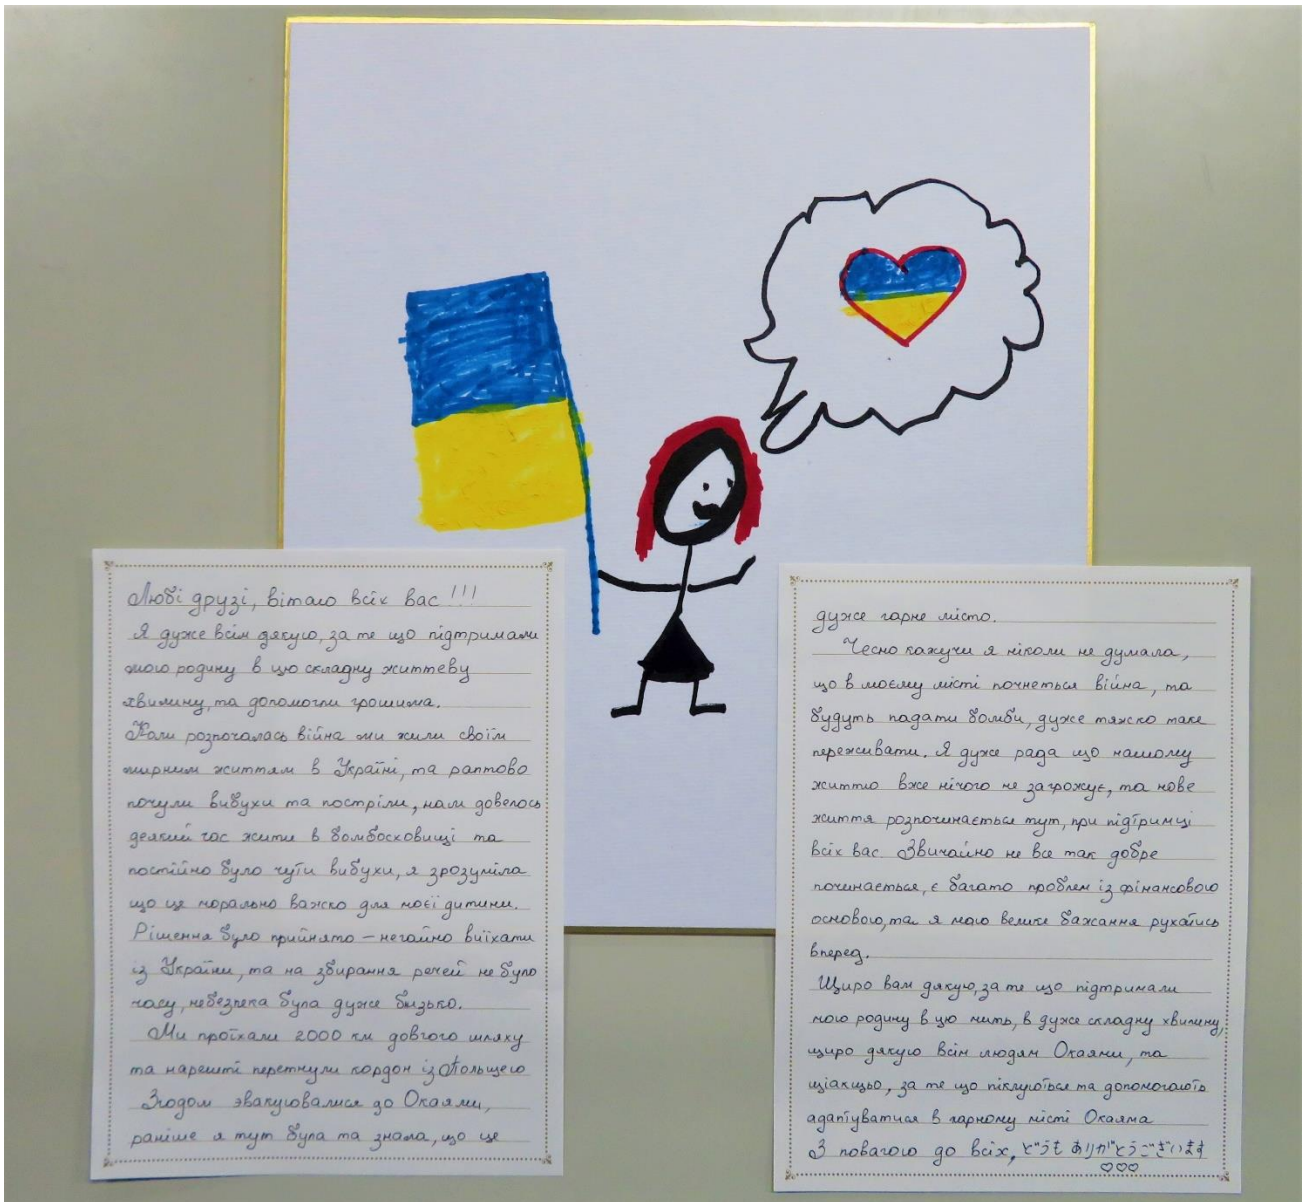 Любі друзі, вітаю всіх вас !!!
Я дуже всім дякую, за те що підтримали
мою родину в цю складну життєву
хвилину, та допомогли грошима.
Коли розпочалась війна ми жили своїм
мирним життям в Україні, та раптово
почули вибухи та постріли, нам довелось
деякий час жити в бомбосховищі та
постійно було чути вибухи, я зрозуміла
що це морально важко для моєї дитини.
Рішення було прийнято – негайно виїхати
із України, та на збирання речей не було
часу, небезпека була дуже близько.
Ми проїхали 2000 км довгого шляху
та нарешті перетнули кордон із Польщею
Згодом эвакуювалися до Окаями,
раніше я тут була та знала, що це
дуже гарне місто.
Чесно кажучи я ніколи не думала,
що в моєму місті почнеться війна, та
будуть падати бомби, дуже тяжко таке
переживати. Я дуже рада що нашому
життю вже нічого не загрожує, та нове
життя розпочинається тут, при підтримці
всіх вас. Звичайно не все так добре
починається, є багато проблем із фінансового
основою, та я маю велике бажання рухатись
вперед.
Щиро вам дякую, за те що підтримали
мою родину в цю мить, в дуже складну хвилину,
щиро дякую всім людям Окаями, та
ціакцьо, за те що піклуються та допомогають
адаптуватися в гарному місті Окаяма
З повагою до всіх, どうも ありがとうございます
♡♡♡